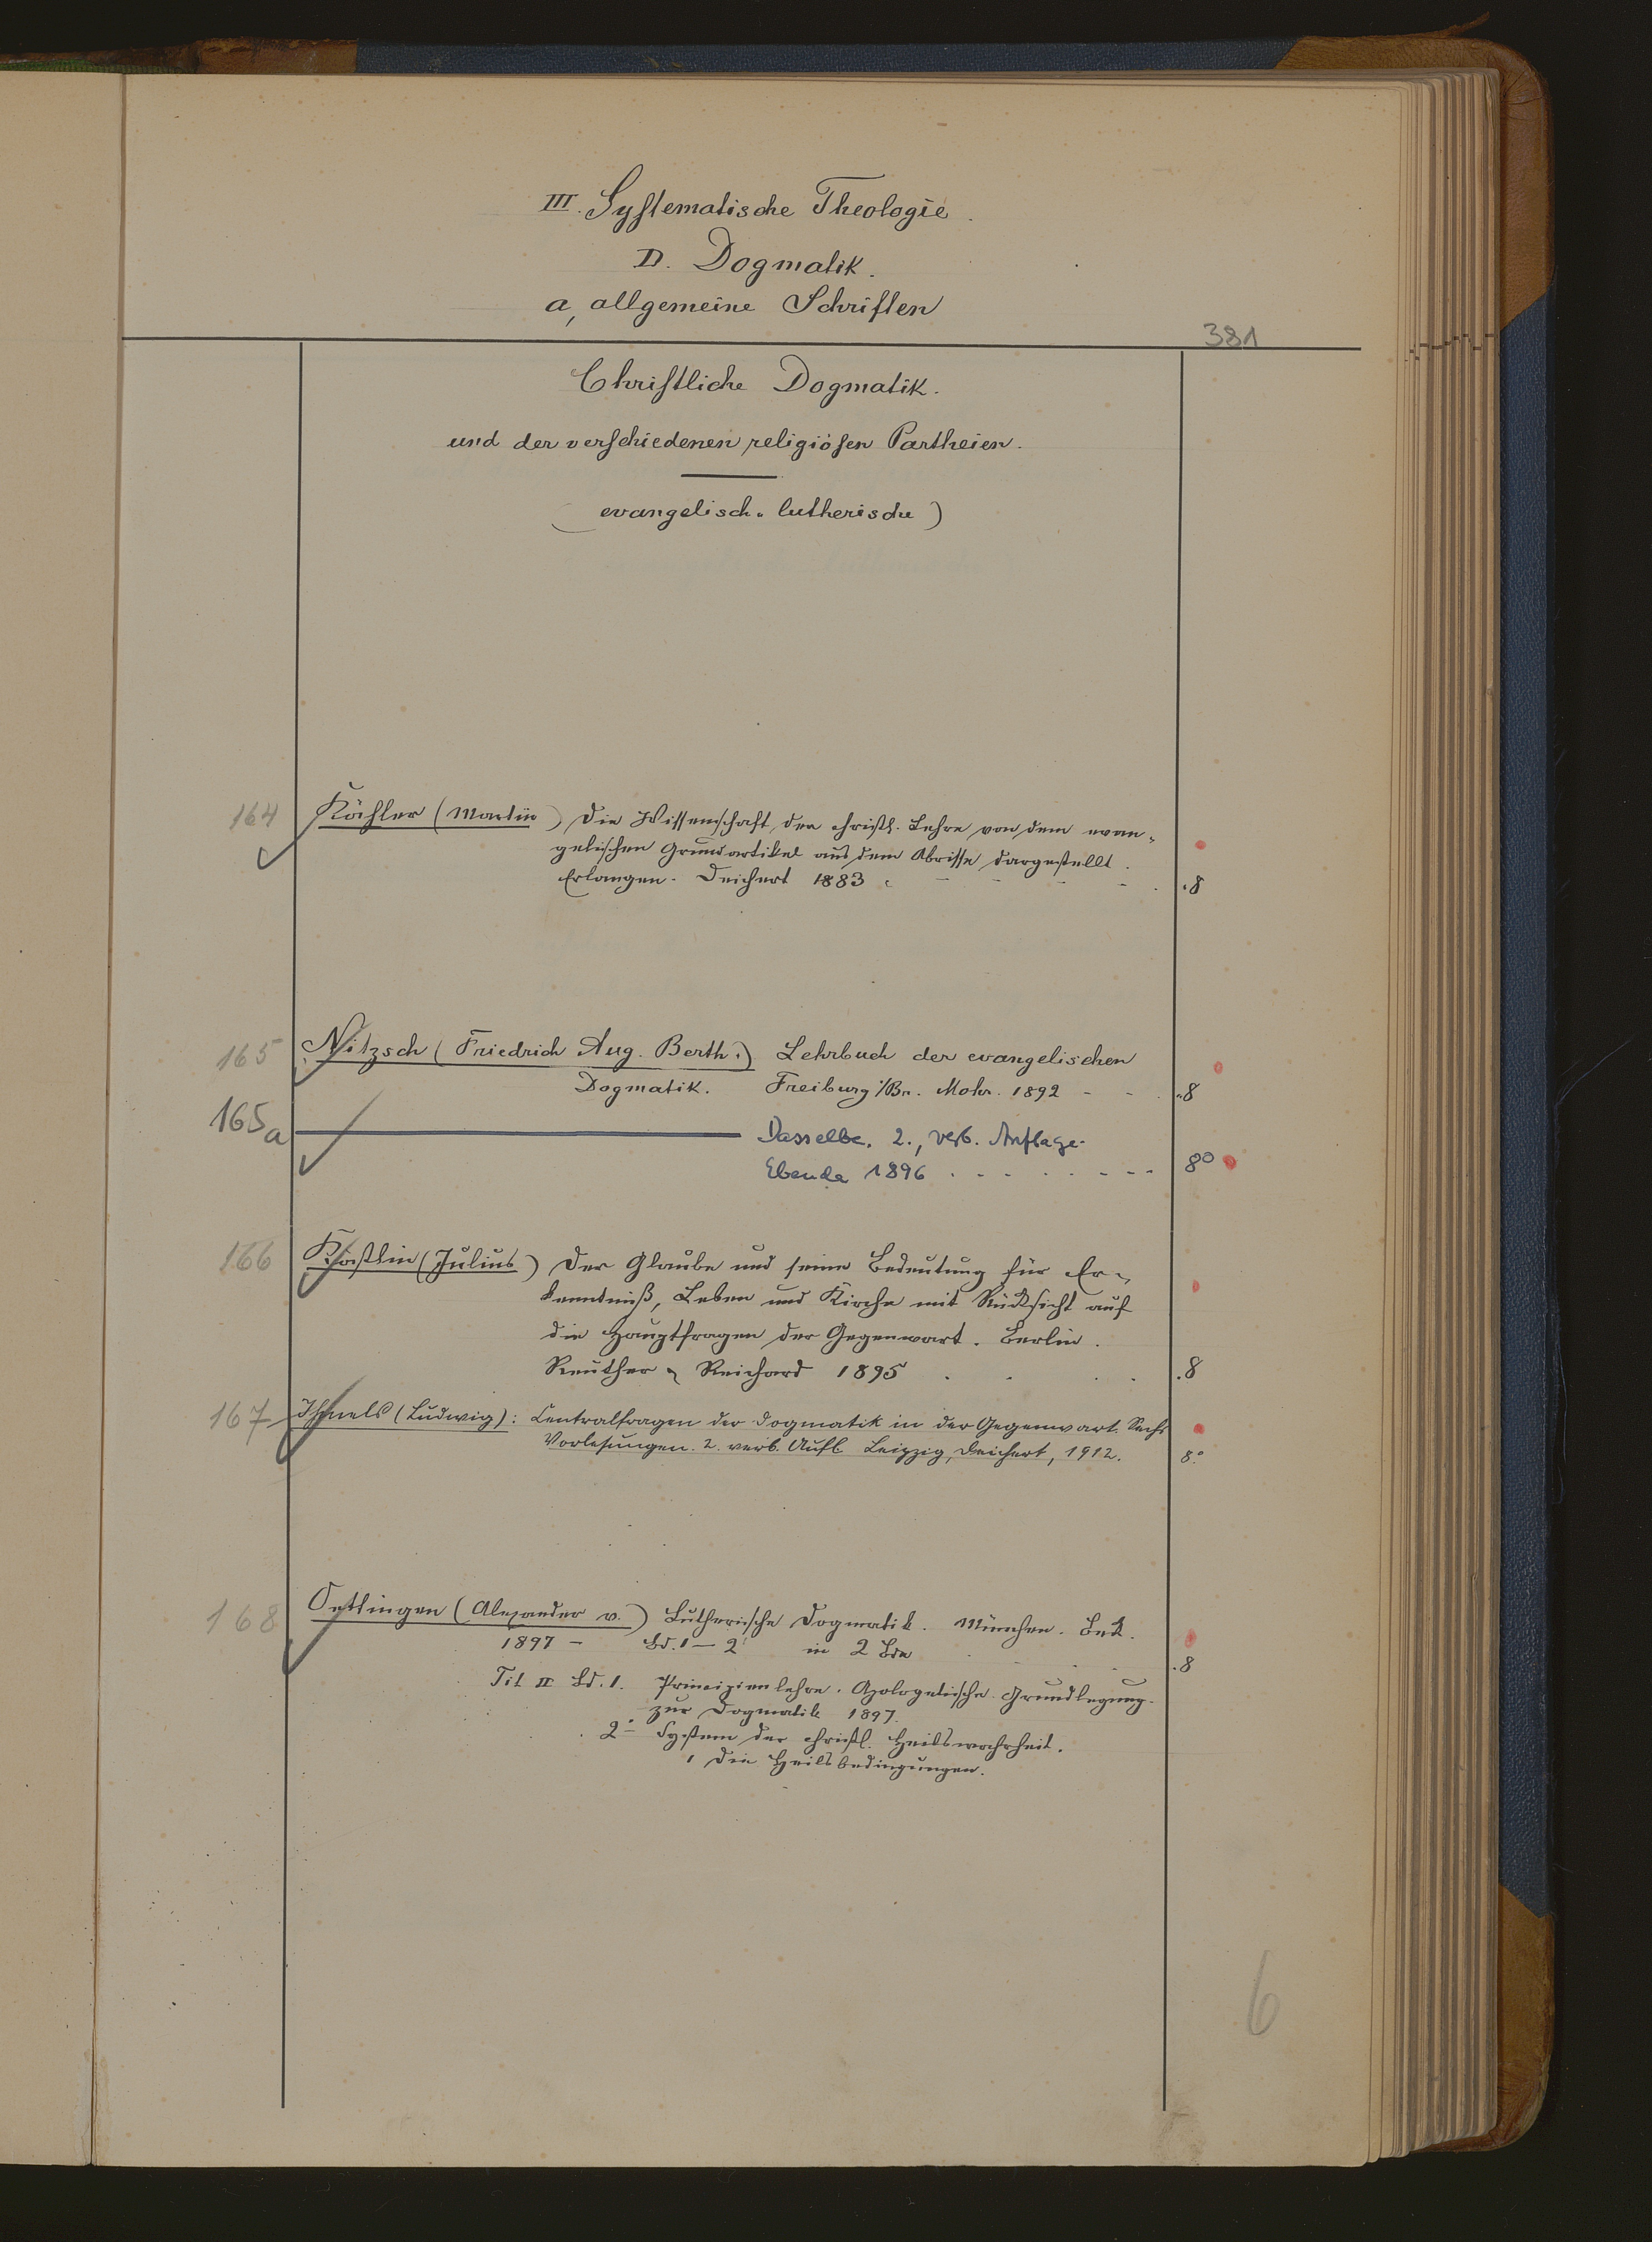 III. Systematische Theologie.
D. Dogmatik.
a, allgemeine Schriften
381
Christliche Dogmatik.
und der verschiedenen religiösen Partheien.
(evangelisch-lutherische)
164 Kähler (Martin) Die Wissenschaft der christl. Lehre von dem evan-
gelischen Grundartikel aus dem Abrisse dargestellt.
Erlangen. Deichert 1883 8
165 Nitzsch (Friedrich Aug. Berth.) Lehrbuch der evangelischen
Dogmatik. Freiburg i/Br. Mohr. 1892 - - 8
165a Dasselbe. 2., verb. Auflage.
Ebenda 1896 . - - . . - - - 8°
166 Köstlin (Julius) Der Glaube und seine Bedeutung für Er-
kenntniß, Leben und Kirche mit Rücksicht auf
die Hauptfragen der Gegenwart. Berlin.
Reuther & Reichard 1895 . . . . 8
167 Ihmels (Ludwig): Centralfragen der Dogmatik in der Gegenwart. Sechs
Vorlesungen. 2. verb. Aufl. Leipzig, Deichert, 1912. 8°
168 Oettingen (Alexander v.) Lutherische Dogmatik. München. Beck.
1897 - Bd. 1-2 in 2 Bde 8
Tit II Bd. 1. Principienlehre. Apologetische Grundlegung
zur Dogmatik 1897.
2 System der christl. Heilswahrheit.
1 Die Heilsbedingungen.
6